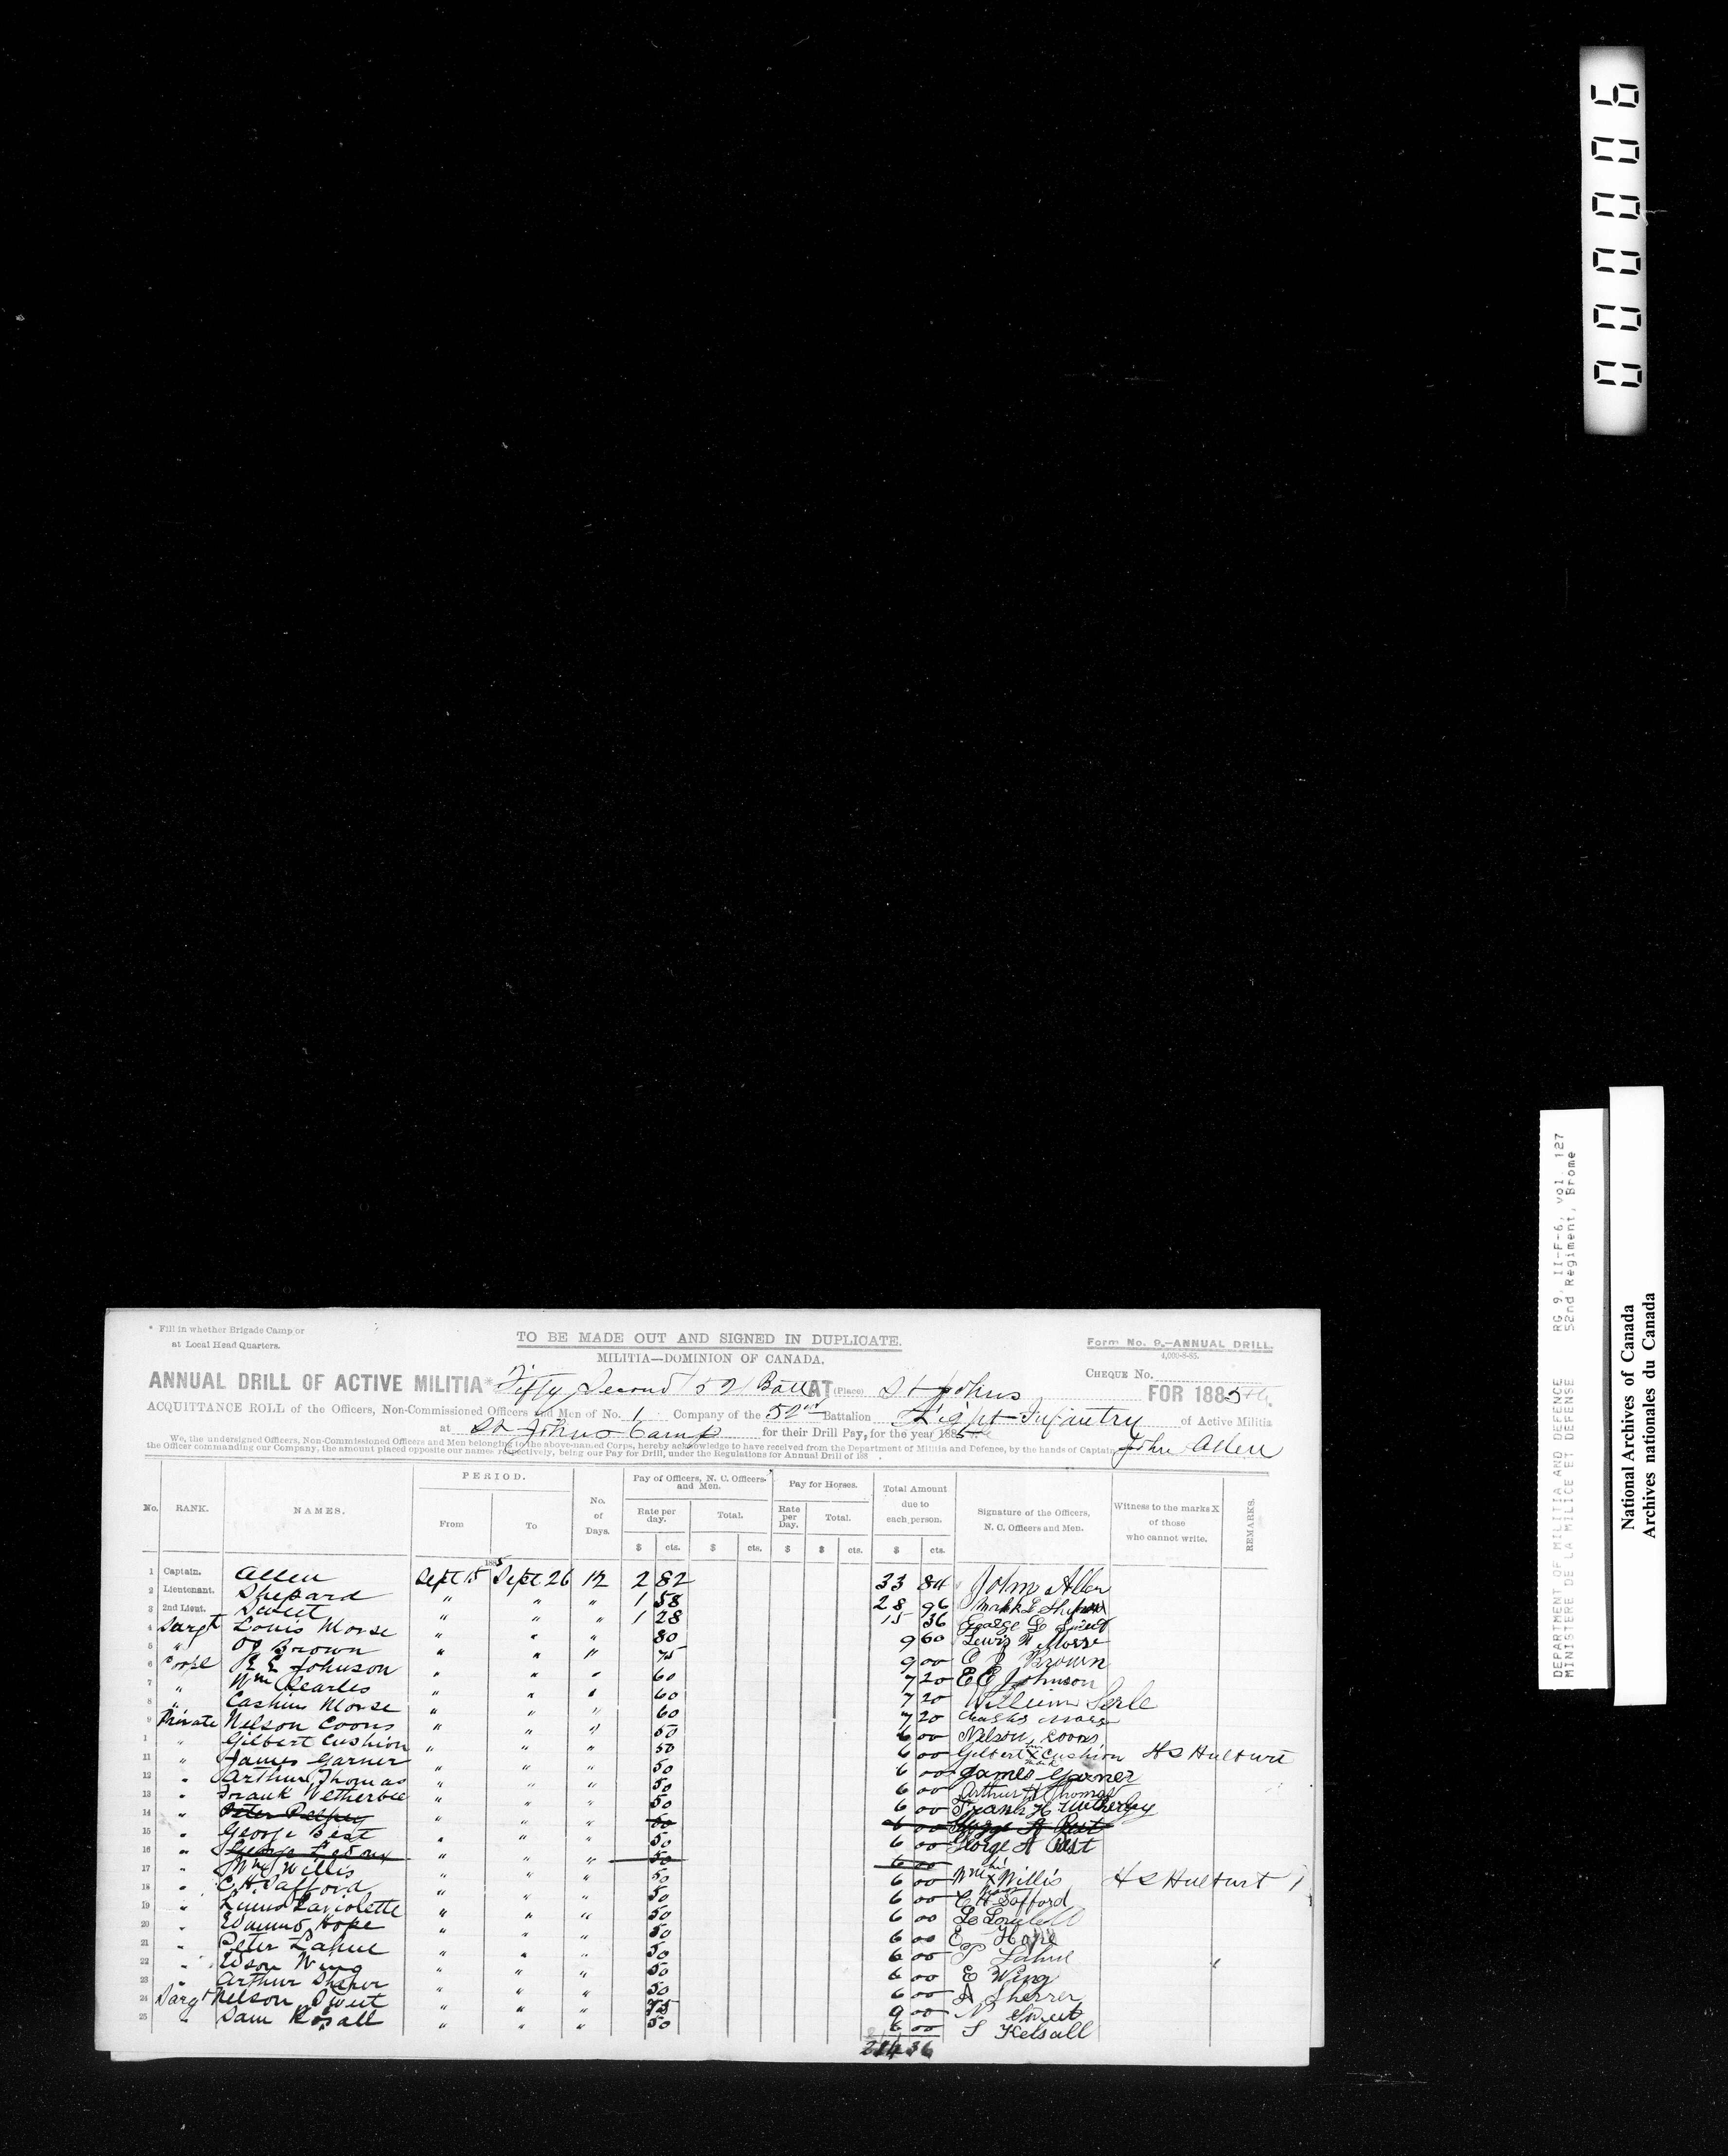 000006
* Fill in whether Brigade Camp or
at Local Head Quarters.
TO BE MADE OUT AND SIGNED IN DUPLICATE.
Form No. 9.—ANNUAL DRILL.
4,000-8-85.
MILITIA—DOMINION OF CANADA.
CHEQUE No.
ANNUAL DRILL OF ACTIVE MILITIA* Fifty Second 52 Batt AT (Place) St Johns FOR 1885
ACQUITTANCE ROLL of the Officers, Non-Commissioned Officers and Men of No. 1 Company of the 52nd Battalion Light Infantry of Active Militia
at St Johns Camp for their Drill Pay, for the year 1885
We, the undersigned Officers, Non-Commissioned Officers and Men belonging to the above-named Corps, hereby acknowledge to have received from the Department of Militia and Defence, by the hands of Captain John Allen
the Officer commanding our Company, the amount placed opposite our names respectively, being our Pay for Drill, under the Regulations for Annual Drill of 188 .
No. RANK. NAMES. PERIOD. From To No. of Days. Pay of Officers, N. C. Officers and Men. Rate per day. Total. Pay for Horses. Rate per Day. Total. Total Amount due to each person. Signature of the Officers, N. C. Officers and Men. Witness to the marks X of those who cannot write. REMARKS.
$ cts. $ cts. $ $ cts. $ cts.
1885
1 Captain. Allen Sept 15 Sept 26 12 2 82 33 84 John Allen
2 Lieutenant. Shepard " " " 1 58 28 96 Mark L Shepard
3 2nd Lieut. Sweet " " " 1 28 15 36 George L Sweet
4 Sargt Louis Morse " " " 80 9 60 Lewis N Morse
5 " O J Brown " " " 75 9 00 O J Brown
6 Corpl E E Johnson " " " 60 7 20 E E Johnson
7 " Wm Searles " " " 60 7 20 William Serle
8 " Cashius Morse " " " 60 7 20
9 Private Nelson Coons " " " 50 6 00 Nelson Coons
1 " Gilbert Cushion " " " 50 6 00 Gilbert X Cushion H S Hulburt
11 " James Garner " " " 50 6 00 James Garner
12 " Arthur Thomas " " " 50 6 00 Arthur H Thomas
13 " Frank Wetherbee " " " 50 6 00 Frank H Wetherby
14 Peter
15 " George Best " " " 50 6 00 George A Best
16 " George " " " 50 6 00
17 " Wm Willis " " " 50 6 00 Wm X Willis H S Hulburt
18 " C. H. Safford " " " 50 6 00 C H Safford
19 " Laviolette " " " 50 6 00
20 " Edmund Hope " " " 50 6 00 E Hope
21 " Peter Lahue " " " 50 6 00 P Lahue
22 " Edson Wing " " " 50 6 00 E Wing
23 " Arthur Sherer " " " 50 6 00 A Sherrer
24 Sargt Nelson Sweet " " " 75 9 00 N Sweet
25 " Sam Kesall " " " 50 6 00 S Kelsall
DEPARTMENT OF MILITIA AND DEFENCE RG 9, II-F-6, vol. 127
MINISTERE DE LA MILICE ET DEFENSE 52nd Regiment, Brome
National Archives of Canada
Archives nationales du Canada